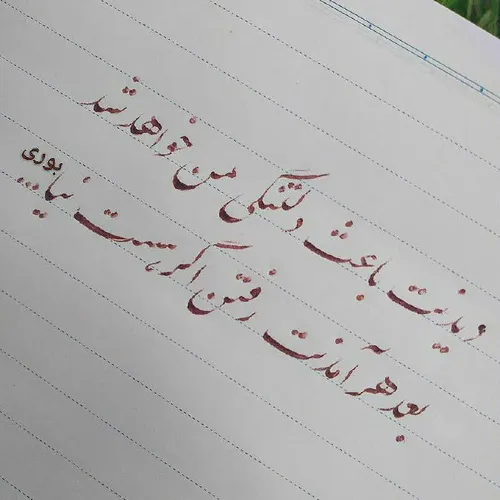 دیدنت باعث دلتنگی من خواهد شد
بعد هر آمدنت رفتن اگر هست نیا...
بوری